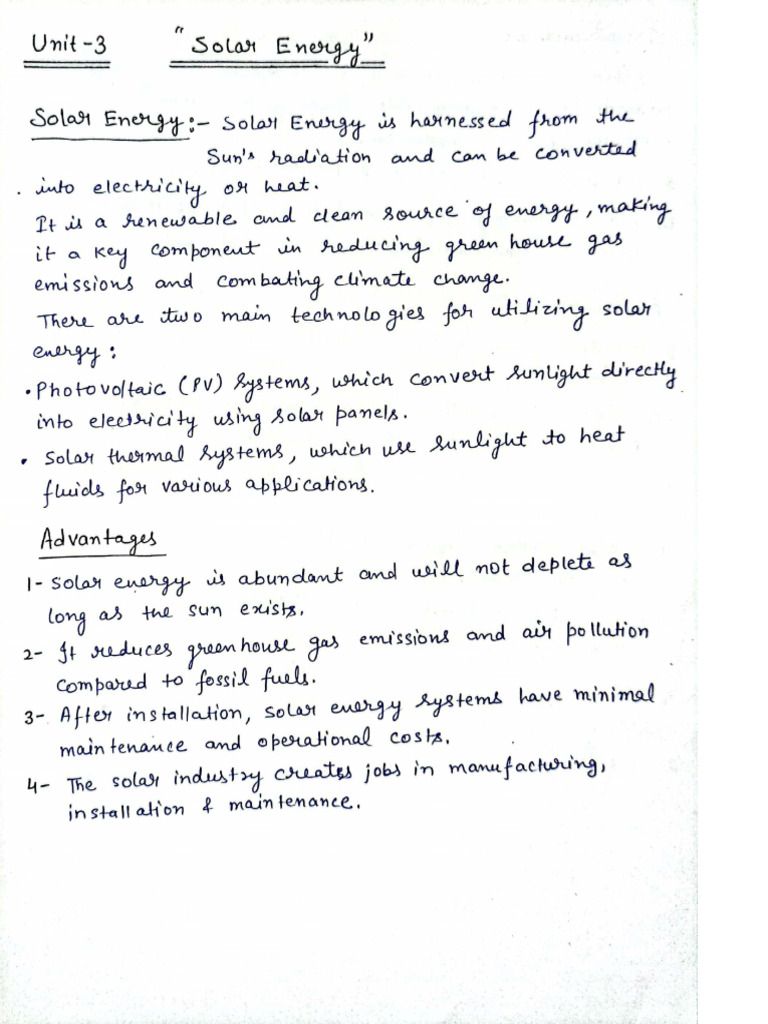 Unit-3 "Solar Energy"
Solar Energy:- Solar Energy is harnessed from the
Sun's radiation and can be converted
into electricity or heat.
It is a renewable and clean source of energy, making
it a key component in reducing green house gas
emissions and combating climate change.
There are two main technologies for utilizing solar
energy:
• Photovoltaic (PV) systems, which convert sunlight directly
into electricity using solar panels.
• Solar thermal systems, which use sunlight to heat
fluids for various applications.
Advantages
1- Solar energy is abundant and will not deplete as
long as the sun exists.
2- It reduces green house gas emissions and air pollution
compared to fossil fuels.
3- After installation, solar energy systems have minimal
maintenance and operational costs.
4- The solar industry creates jobs in manufacturing,
installation & maintenance.